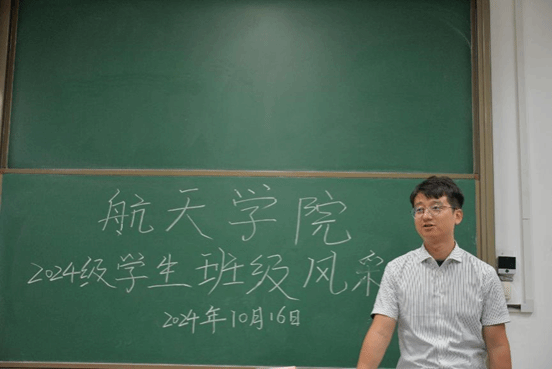 航天学院
2024级学生班级风采
2024年10月16日